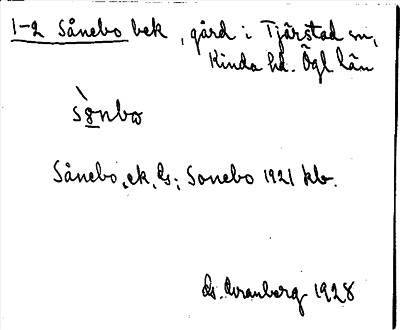 1-2 Sånebo bek, gård i Tjärstad sn,
Kinda hd. Ögl län
sònbω
Sånebo, ek, Gs; Sonebo 1921 kb.
Gs. Granberg 1928